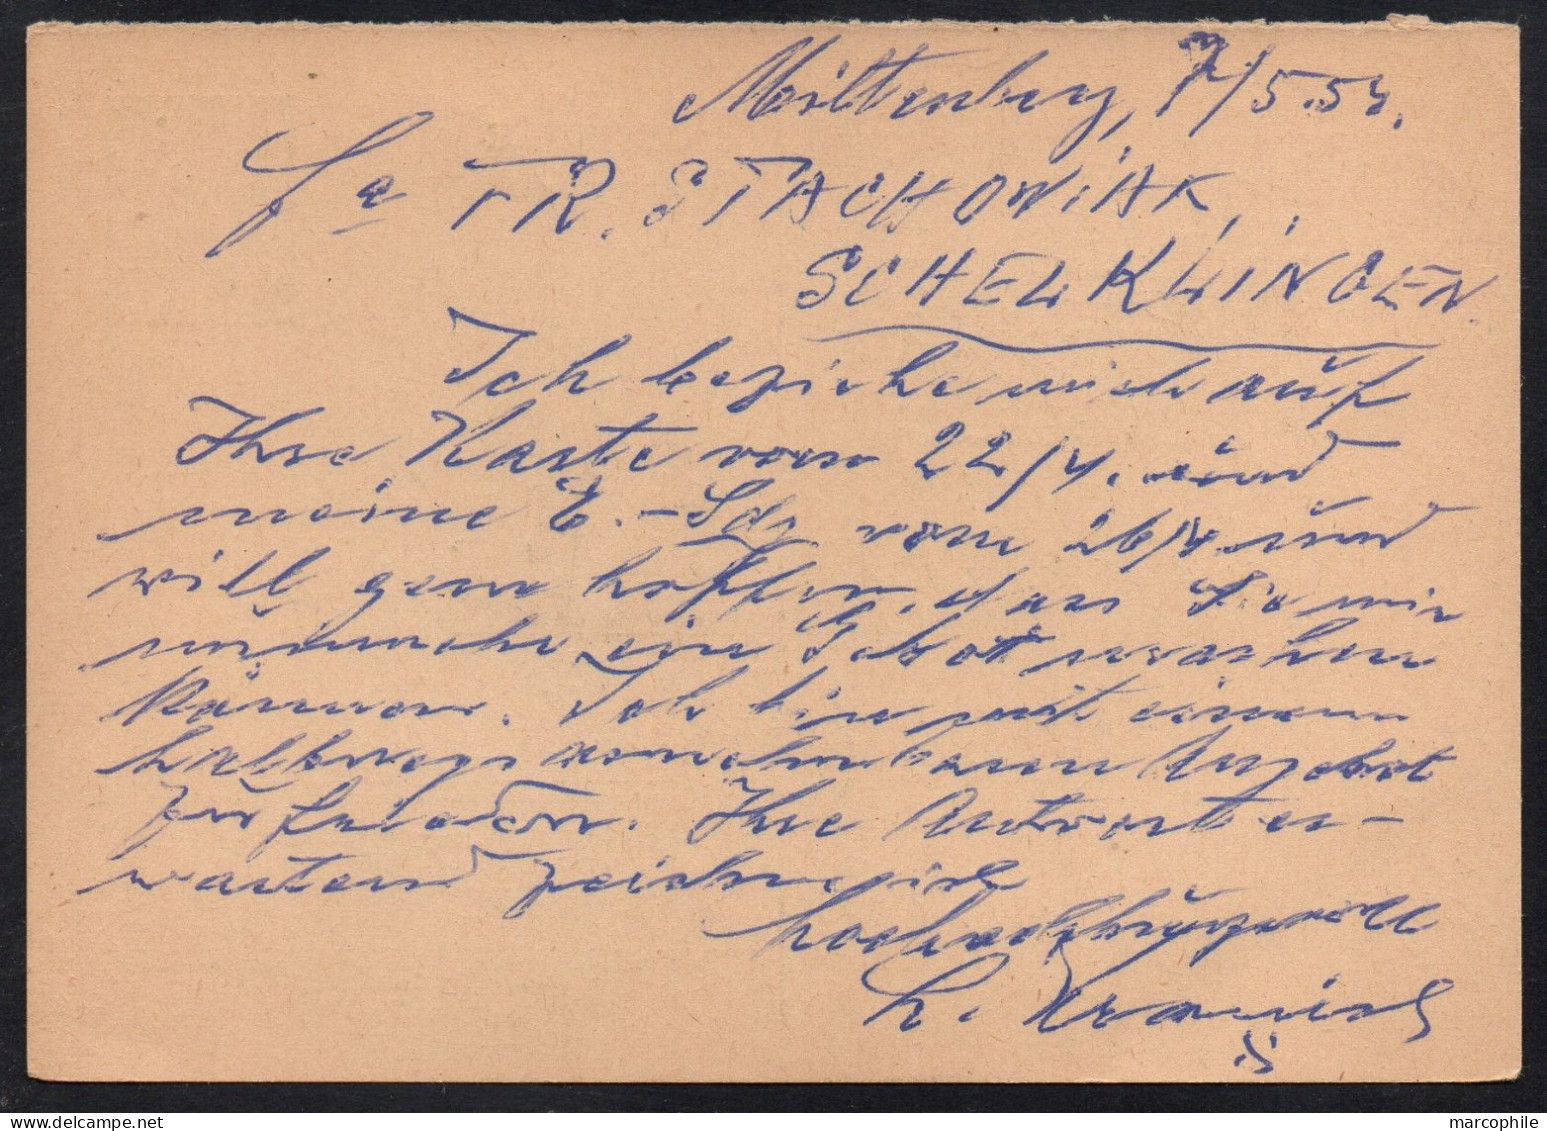 Miltenberg, 7/5.54.
Fa FR. STACHOWIAK,
SCHELKLINGEN.
Ich beziehe mich auf
Ihre Karte vom 22/4. und
meine E.-Sdg vom 26/4 und
will gern hoffen, dass Sie mir
nunmehr ein Gebot machen
können. Ich bin mit einem
halbwegs annehmbaren Angebot
zufrieden. Ihre Antwort er-
wartend zeichne ich
hochachtungsvoll
h.
marcophile.com